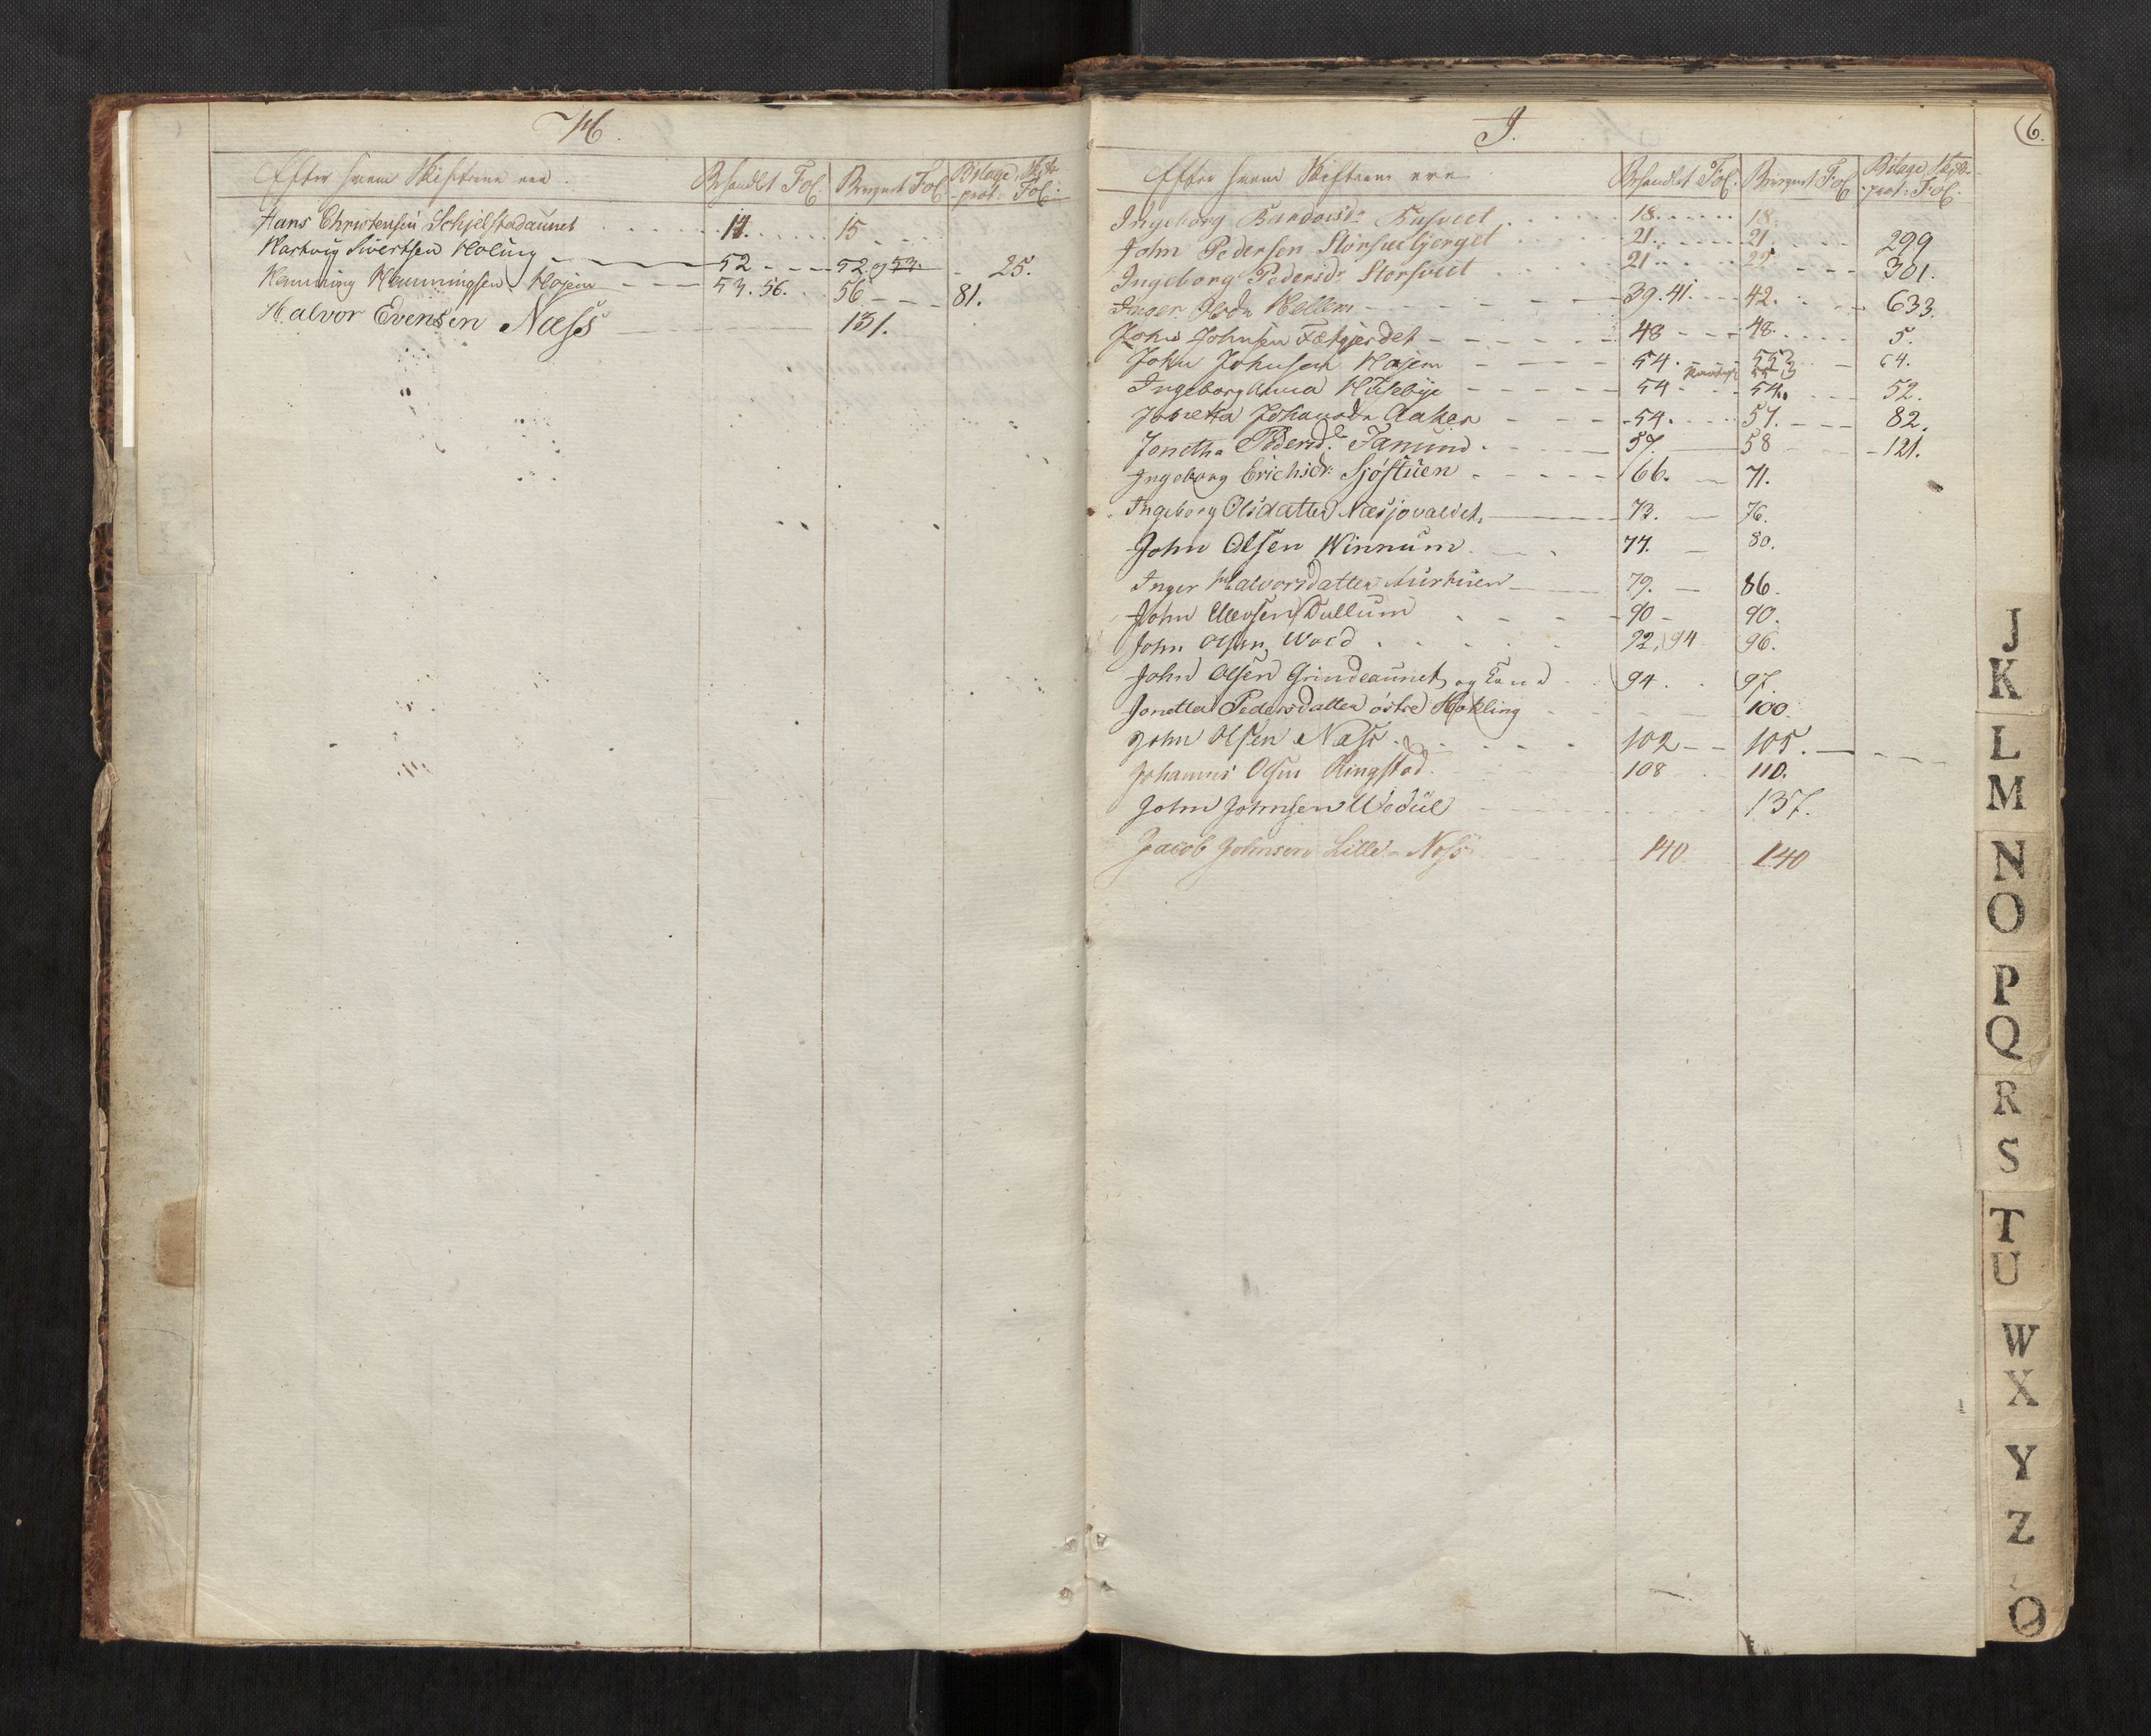 H.
Efter hvem Skifterne ere. Behandlet Fol. Brugust Fol. Bilage Skifte-
prot: Fol:
Hans Christensen Schjelstadaunet 14. 15
Hartvig Sivertsen Holing 52 52 og 53. 25.
Henning Henningsen Hojem 53. 56. 56 81.
Halvor Evensen Næss 131.
I.
6.
Efter hvem Skifterne ere Behandlet Fol. Brugust Fol. Bilage Skifte-
prot: Fol.
Ingeborg 18. 18.
John Pedersen Storhveebjerget 21. 21. 299
Ingeborg Pedersdr Storhveet 21 25 301.
Inger Hellem 39. 41. 42. 633.
John Johnsen Fætgjerdet 48 48. 5.
John Johnsen Hojem 54. 553 64.
Ingeborg Anna Husebye 54 54. 52.
Jonetta Johansdr Aaker 54. 57. 82.
Jonetha Pedersd. Tanund 57. 58 121.
Ingeborg Erichsdr: Sjøstuen 66. 71.
Ingeborg Olsdatter Næsjovaldet 73. 76.
John Olsen Winnum 77. 80.
Inger Halvorsdatter 79. 86.
John Dullum 90 90.
John Olsen Wold 92, 94 96.
John Olsen Grindeaunet og Kone 94. 97.
Jonetta Pedersdatter østre Hokling 100.
John Olsen Næss 102 105.
Johannes Olsen Ringstad 108 110.
John Johnsen Weduel 137.
Jacob Johnsen Lille-Næss 140 140
J
K
L
M
N
O
P
Q
R
S
T
U
W
X
Y
Z
Ø